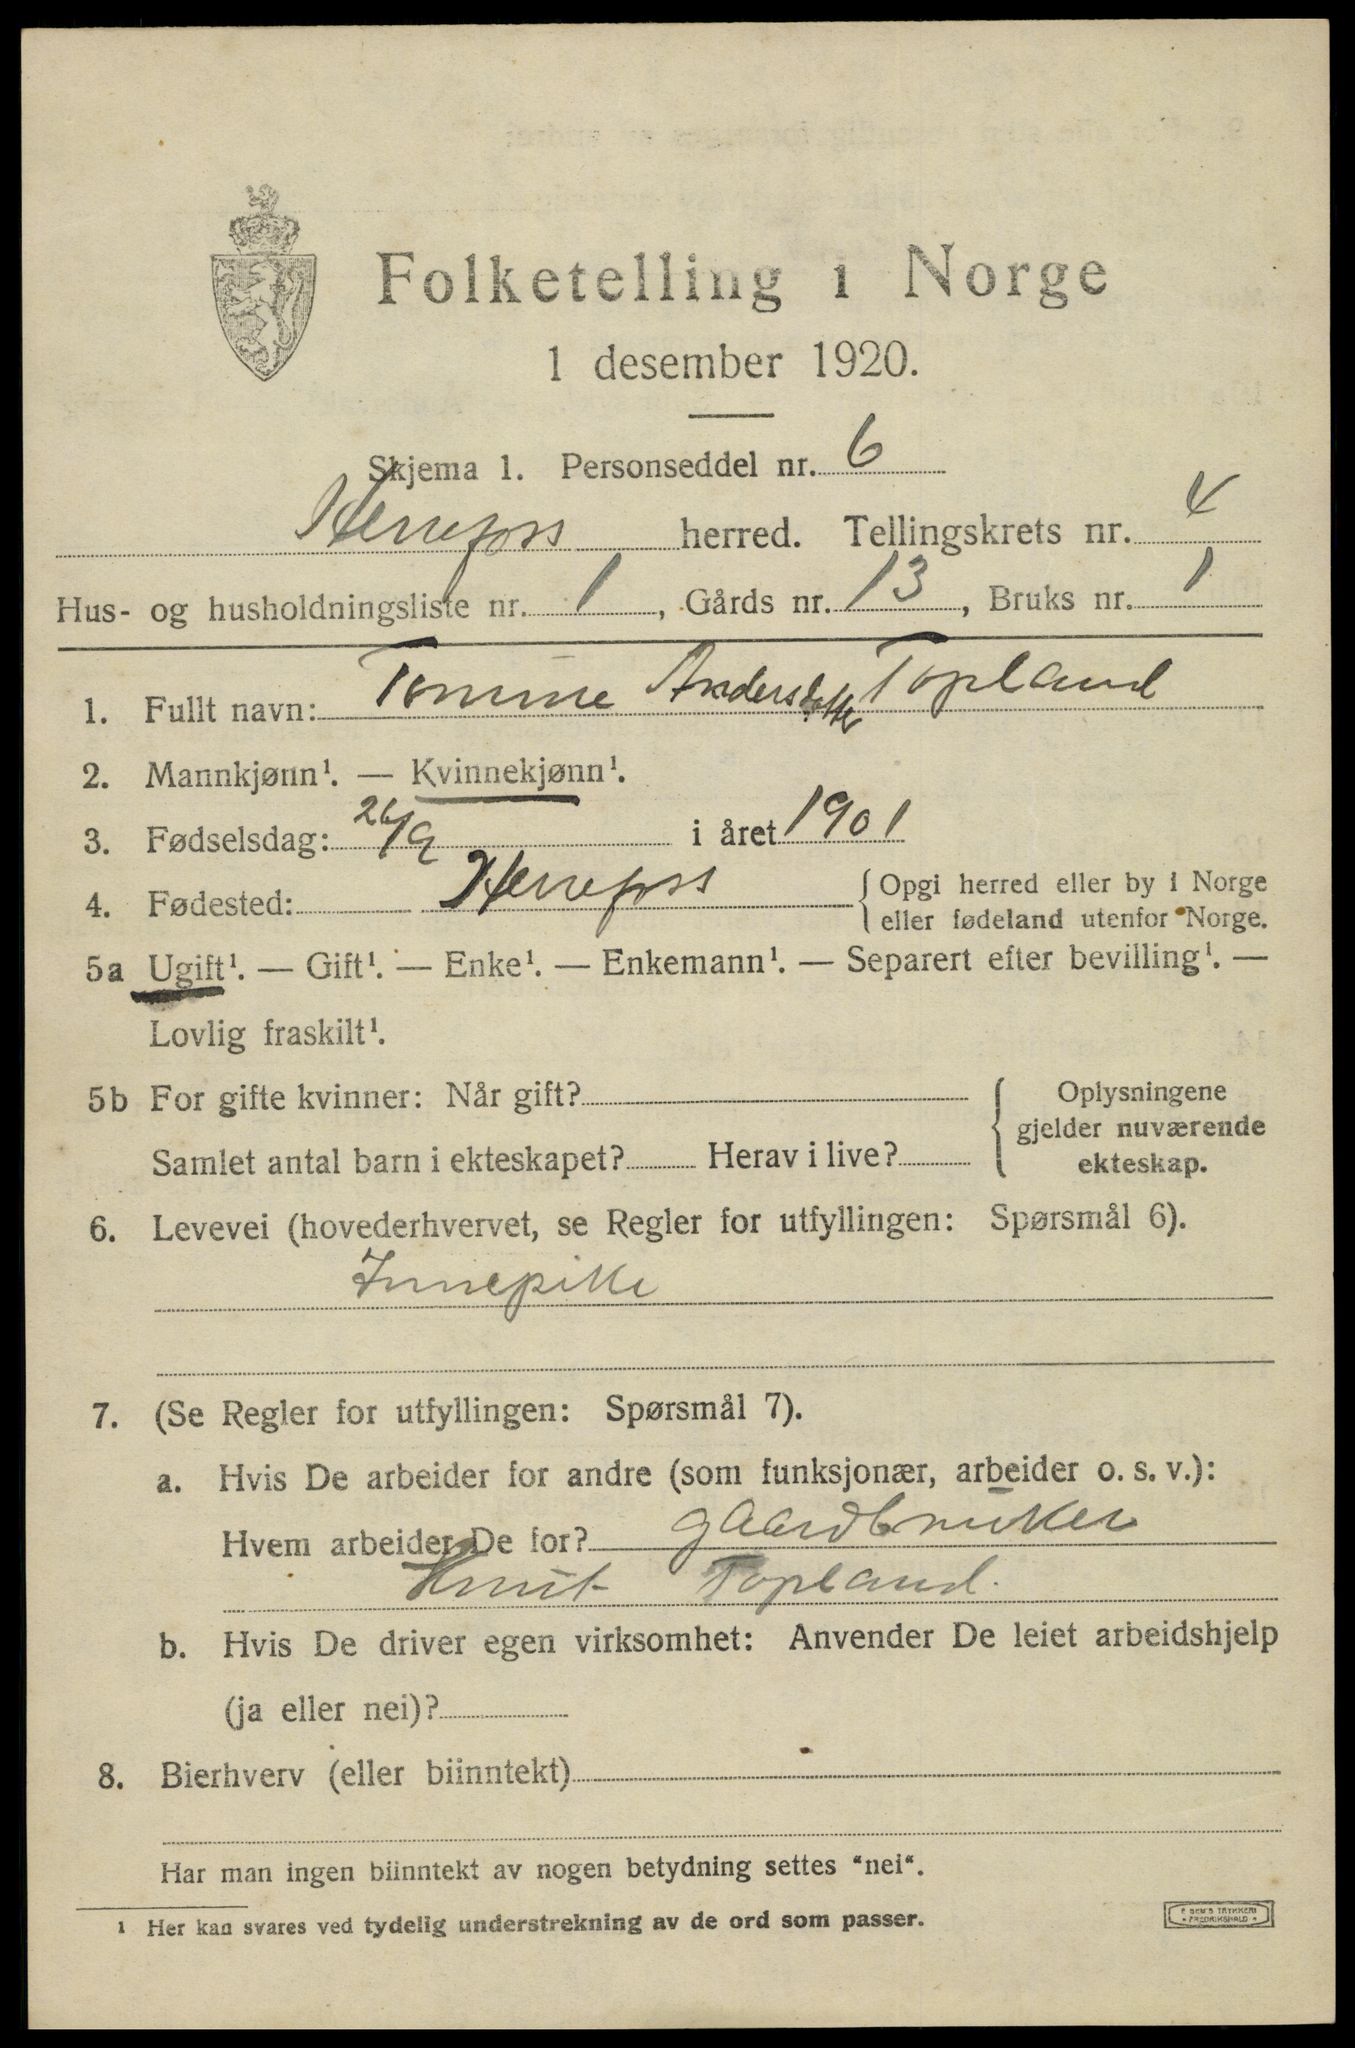 Folketelling i Norge
1 desember 1920.
Skjema 1. Personseddel nr. 6
Herrefoss herred. Tellingskrets nr. 4
Hus- og husholdningsliste nr. 1, Gårds nr. 13, Bruks nr. 1
1. Fullt navn: Tomine Andersdatter Topland
2. Mannkjønn¹. — Kvinnekjønn¹.
3. Fødselsdag: 26/9 i året 1901
4. Fødested: Herrefoss { Opgi herred eller by i Norge
eller fødeland utenfor Norge.
5a Ugift¹. — Gift¹. — Enke¹. — Enkemann¹. — Separert efter bevilling¹. —
Lovlig fraskilt¹.
5b For gifte kvinner: Når gift? { Oplysningene
gjelder nuværende
Samlet antal barn i ekteskapet? Herav i live? ekteskap.
6. Levevei (hovederhvervet, se Regler for utfyllingen: Spørsmål 6).
Innepike
7. (Se Regler for utfyllingen: Spørsmål 7).
a. Hvis De arbeider for andre (som funksjonær, arbeider o. s. v.):
Hvem arbeider De for? gaardbruker
Knut Topland.
b. Hvis De driver egen virksomhet: Anvender De leiet arbeidshjelp
(ja eller nei)?
8. Bierhverv (eller biinntekt)
Har man ingen biinntekt av nogen betydning settes "nei".
1 Her kan svares ved tydelig understrekning av de ord som passer.
E SEM'S TRYKKERI
• FREDRIKSHALD •